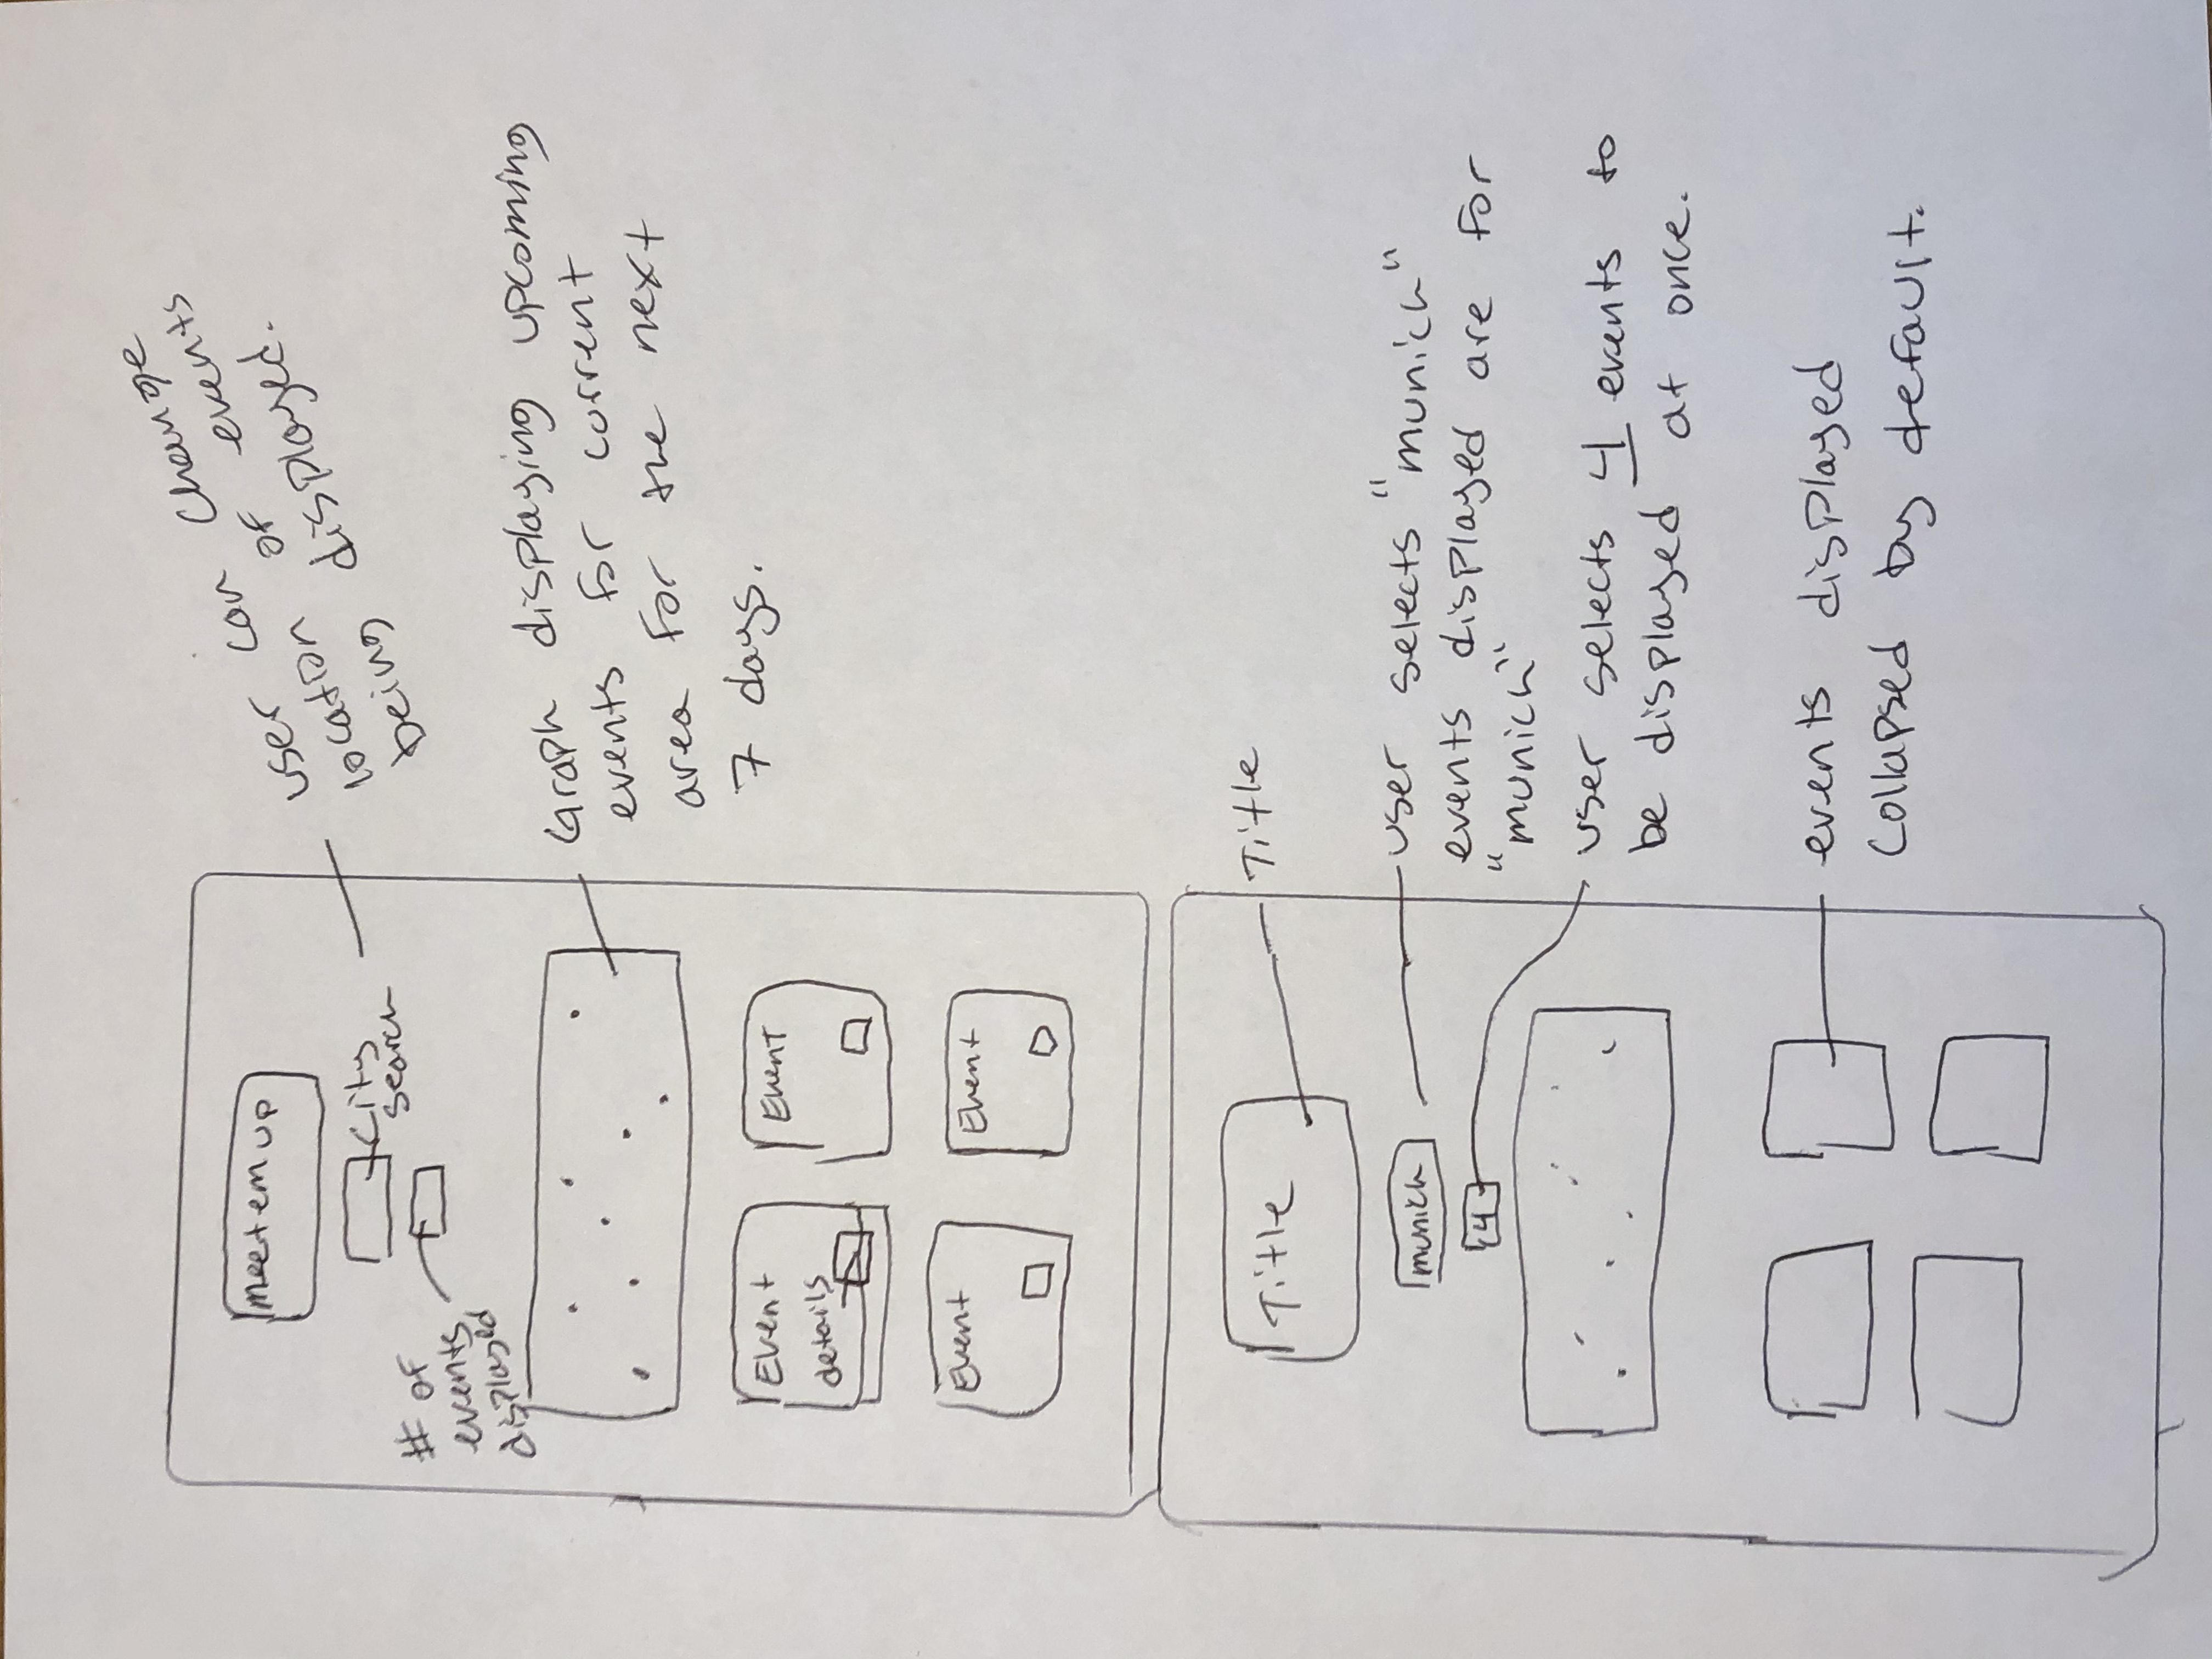 meetemup
City
search
# of
events
displayed
user can change
location of events
being displayed.
Graph displaying upcoming
events for current
area for the next
7 days.
Event
details
Event
Event
Event
Title
Title
munich
user selects "munich"
events displayed are for
"munich"
4
user selects 4 events to
be displayed at once.
events displayed
Collapsed by default.